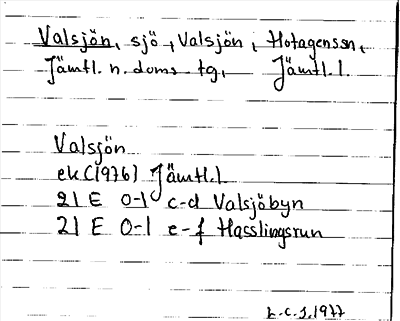 Valsjön, sjö, Valsjön i Hotagens sn,
Jämtl. n. doms. tg, Jämtl. l.
Valsjön
ek (1976) Jämtl. l
21 E 0-1 c-d Valsjöbyn
21 E 0-1 e-f Hasslingsrun
1977